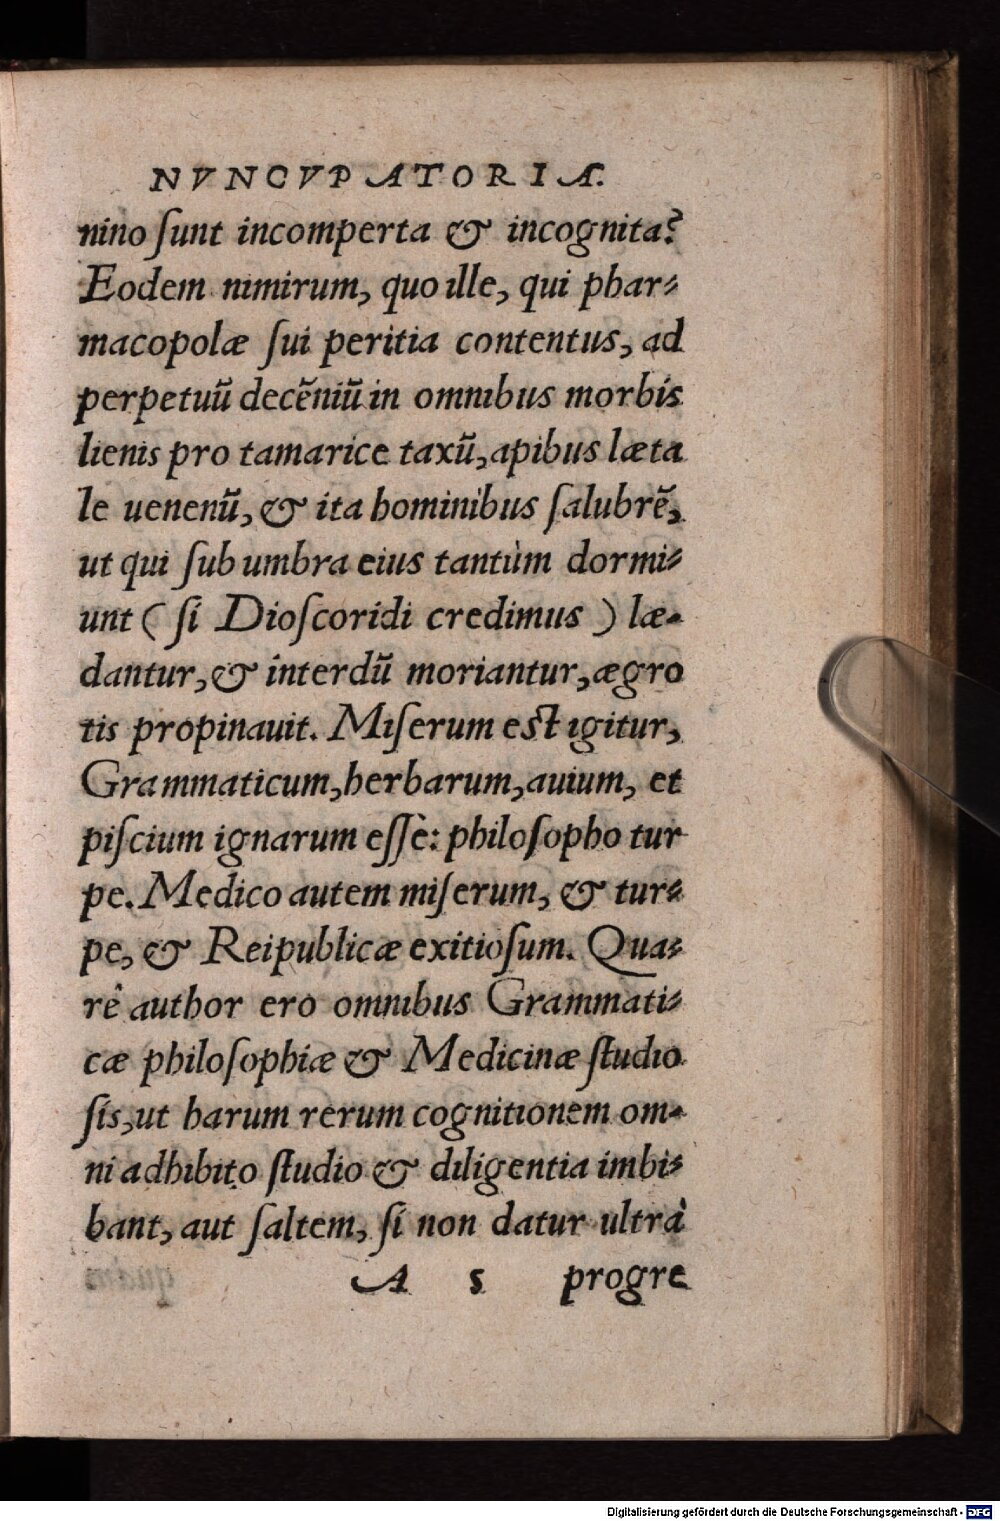 NVNCVPATORIA.
nino ſunt incomperta & incognita?
Eodem nimirum, quo ille, qui phar-
macopolæ ſui peritia contentus, ad
perpetuũ decẽniũ in omnibus morbis
lienis pro tamarice taxũ, apibus læta
le uenenũ, & ita hominibus ſalubrẽ,
ut qui ſub umbra eius tantùm dormi-
unt ( ſi Dioſcoridi credimus ) læ-
dantur, & interdũ moriantur, ægro
tis propinauit. Miſerum eſt igitur,
Grammaticum, herbarum, auium, et
piſcium ignarum eſſe: philoſopho tur
pe. Medico autem miſerum, & tur-
pe, & Reipublicæ exitioſum. Qua-
rê author ero omnibus Grammati-
cæ philoſophiæ & Medicinæ ſtudio
ſis, ut harum rerum cognitionem om-
ni adhibito ſtudio & diligentia imbi-
bant, aut ſaltem, ſi non datur ultrà
A 5 progre
Digitalisierung gefördert durch die Deutsche Forschungsgemeinschaft - DFG